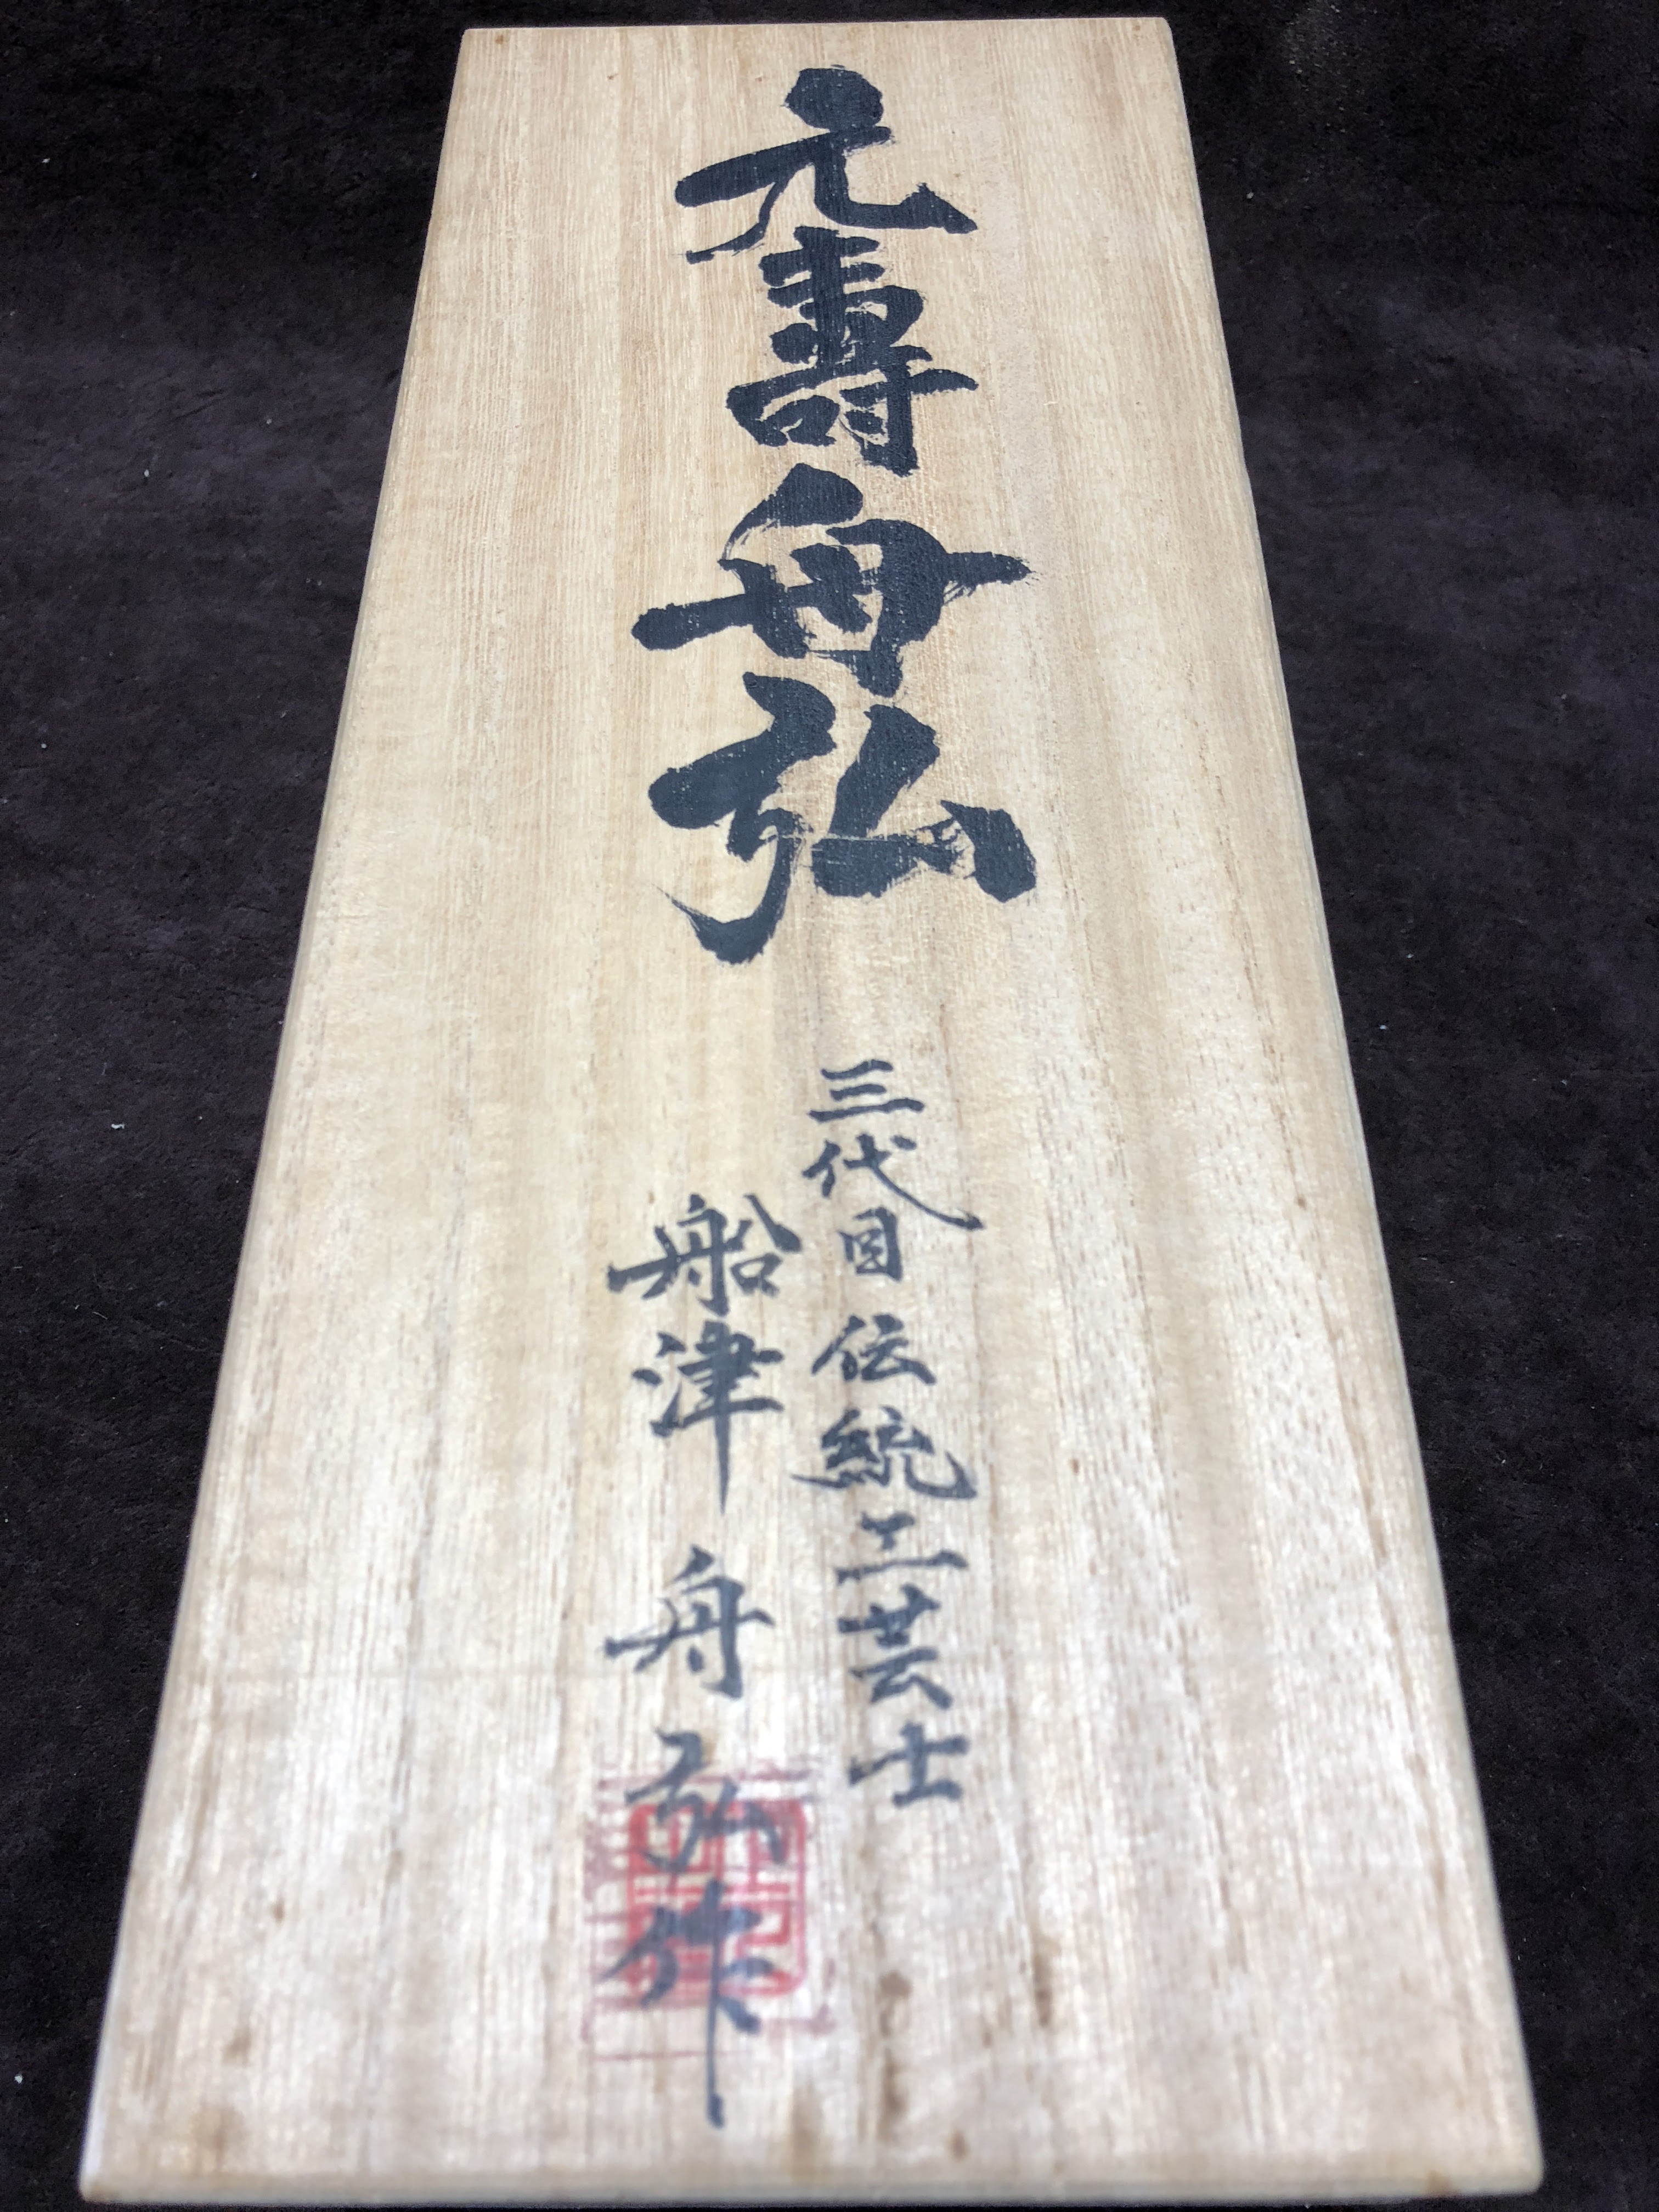 元壽舟弘
三代目伝統工芸士
船津舟弘作